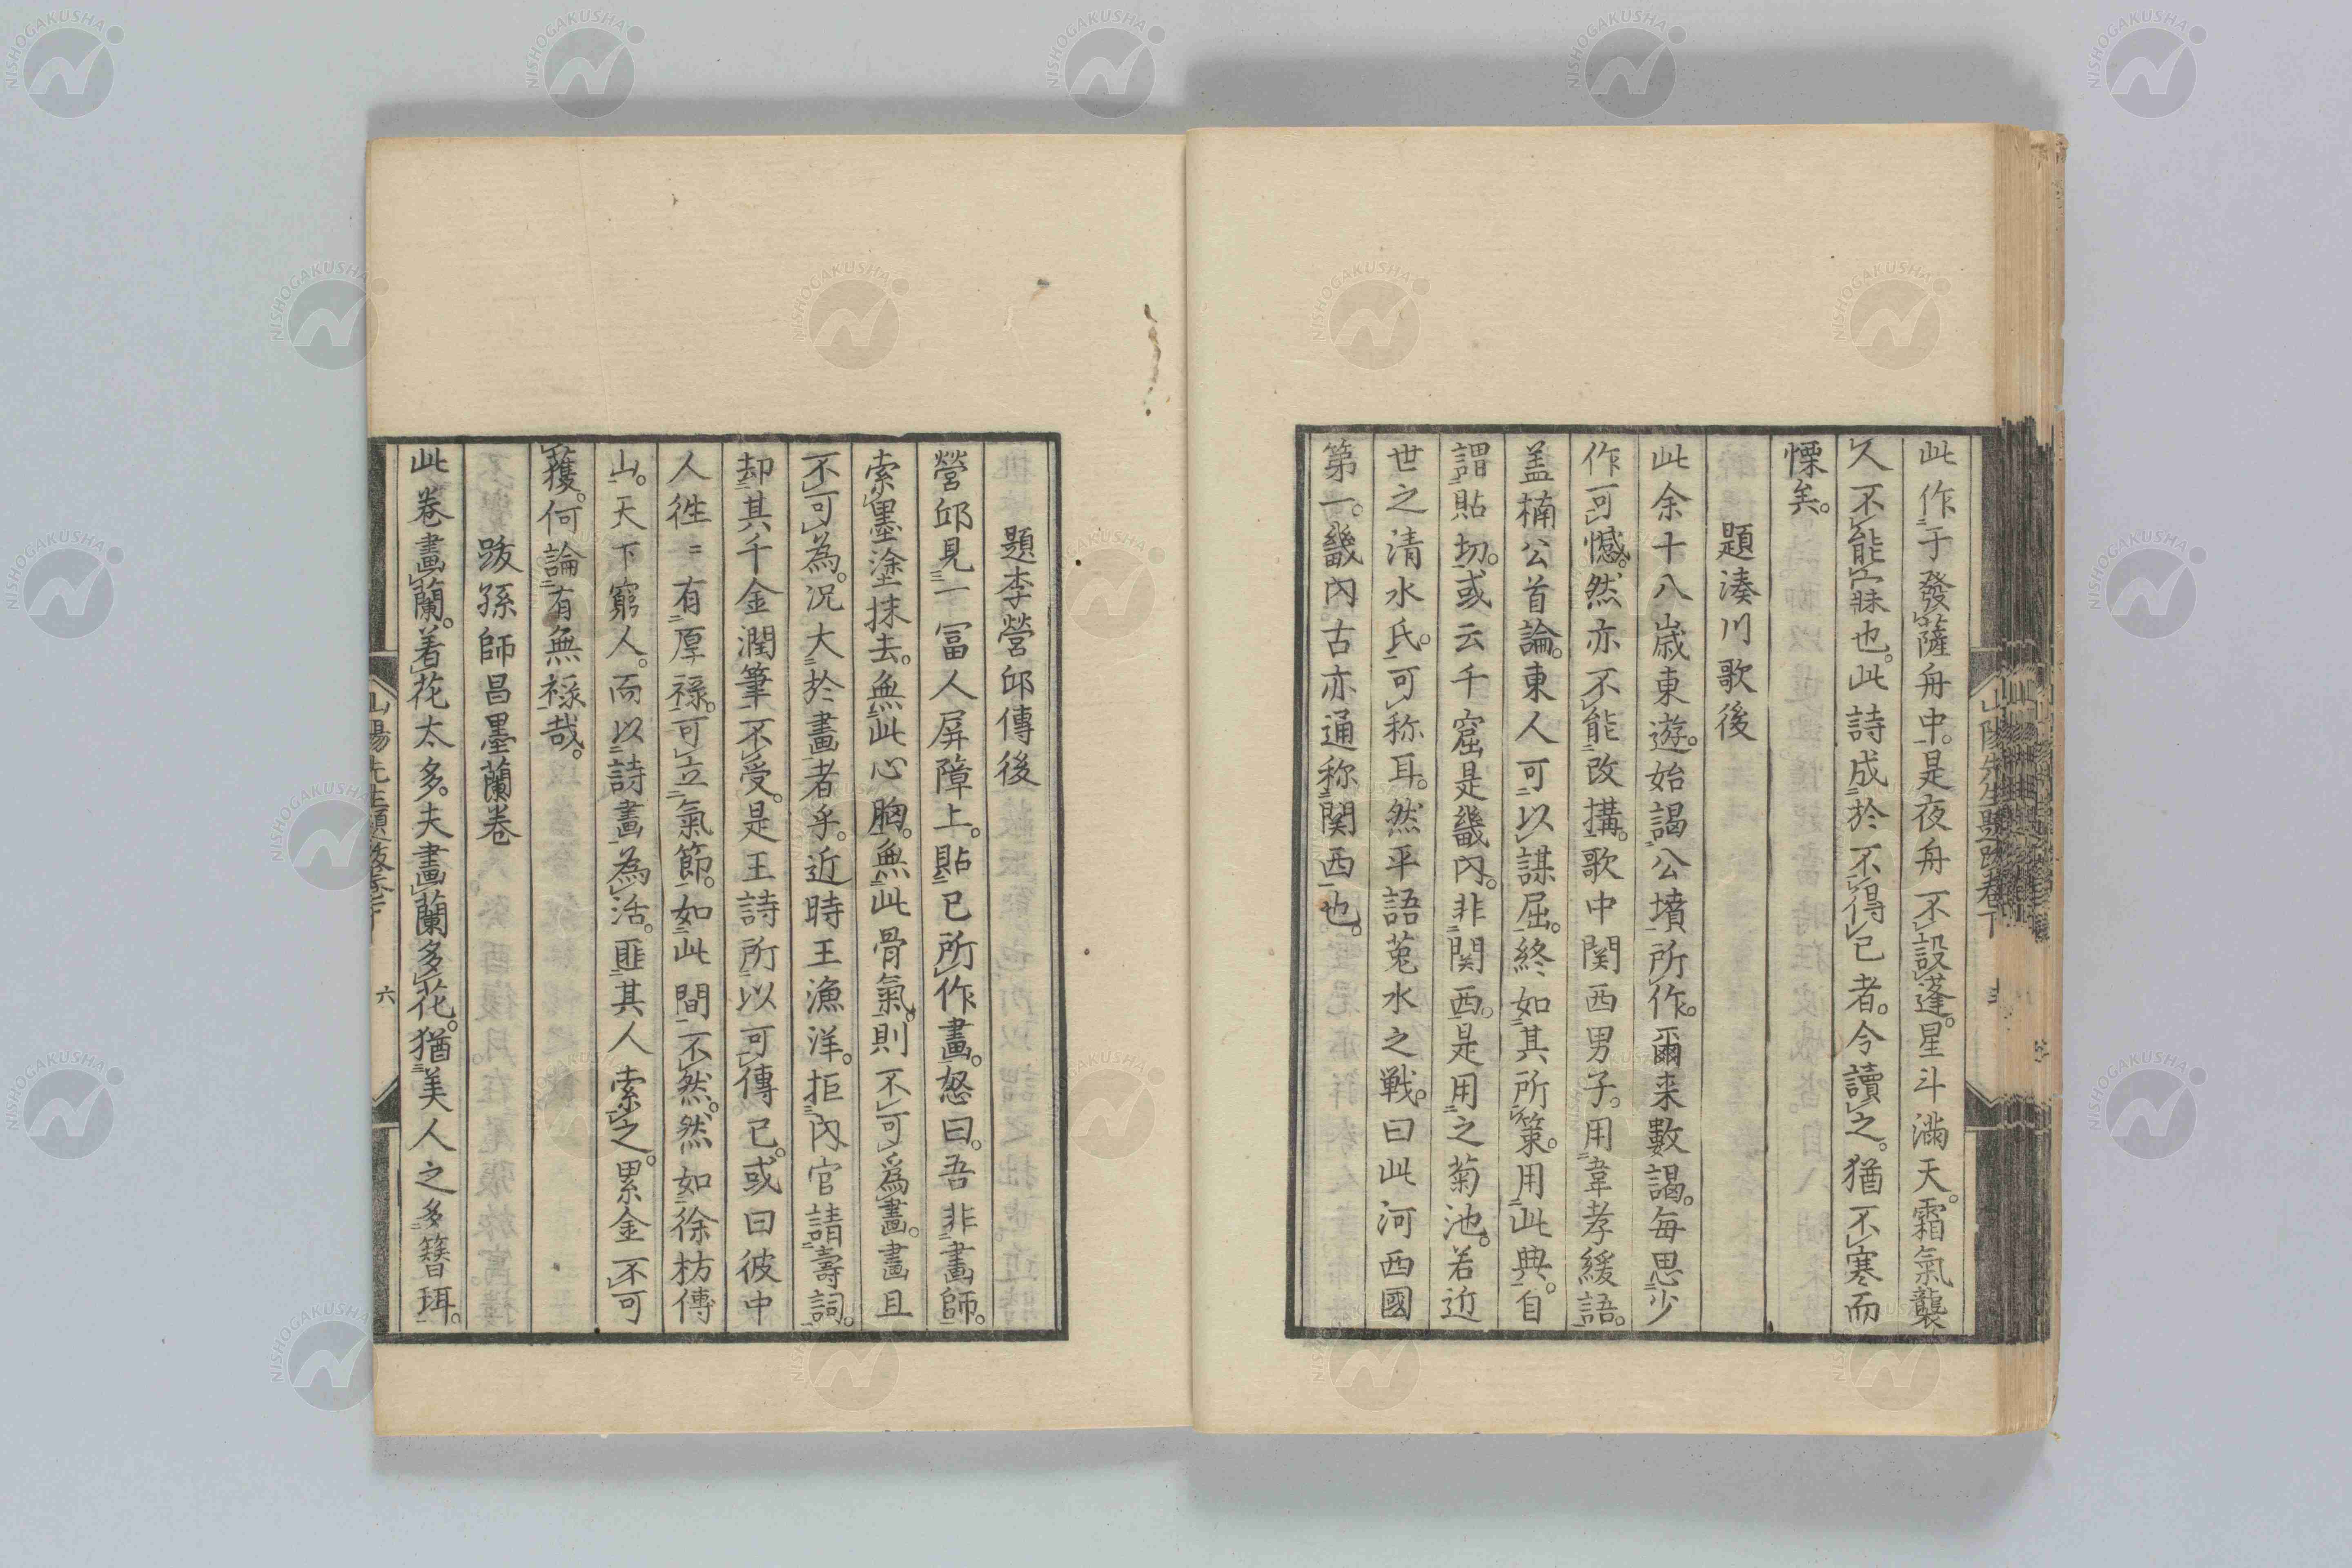 此作于發薩舟中。是夜舟不設蓬。星斗滿天。霜氣襲
久不能寐也。此詩成於不得已者。今讀之。猶不寒而
慄矣。
題湊川歌後
此余十八歳東遊。始謁公墳所作。爾来數謁。毎思少
作可憾。然亦不能改搆。歌中関西男子。用韋孝緩語。
盖楠公首論。東人可以謀屈。終如其所策。用此典。自
謂貼切。或云千窟是畿内。非関西。是用之菊池。若近
世之清水氏。可称耳。然平語菟水之戦。曰此河西國
第一。畿内古亦通称関西也。
山陽先生題跋卷下
題李營邱傳後
營邱見一冨人屏障上。貼已所作畫。怒曰。吾非畫師。
索墨塗抹去。無此心胸。無此骨氣。則不可爲畫。畫且
不可為。况大於畫者乎。近時王漁洋。拒内官請壽詞。
却其千金潤筆不受。是王詩所以可傳已。或曰彼中
人徃〻有厚禄。可立氣節。如此間不然。然如徐枋傳
山。天下窮人。而以詩畫為活。匪其人索之。累金不可
獲。何論有無禄哉。
跋孫師昌墨蘭卷
此卷畫蘭。着花太多。夫畫蘭多花。猶美人之多簪珥。
山陽先生題跋卷下 六
NISHOGAKUSHA